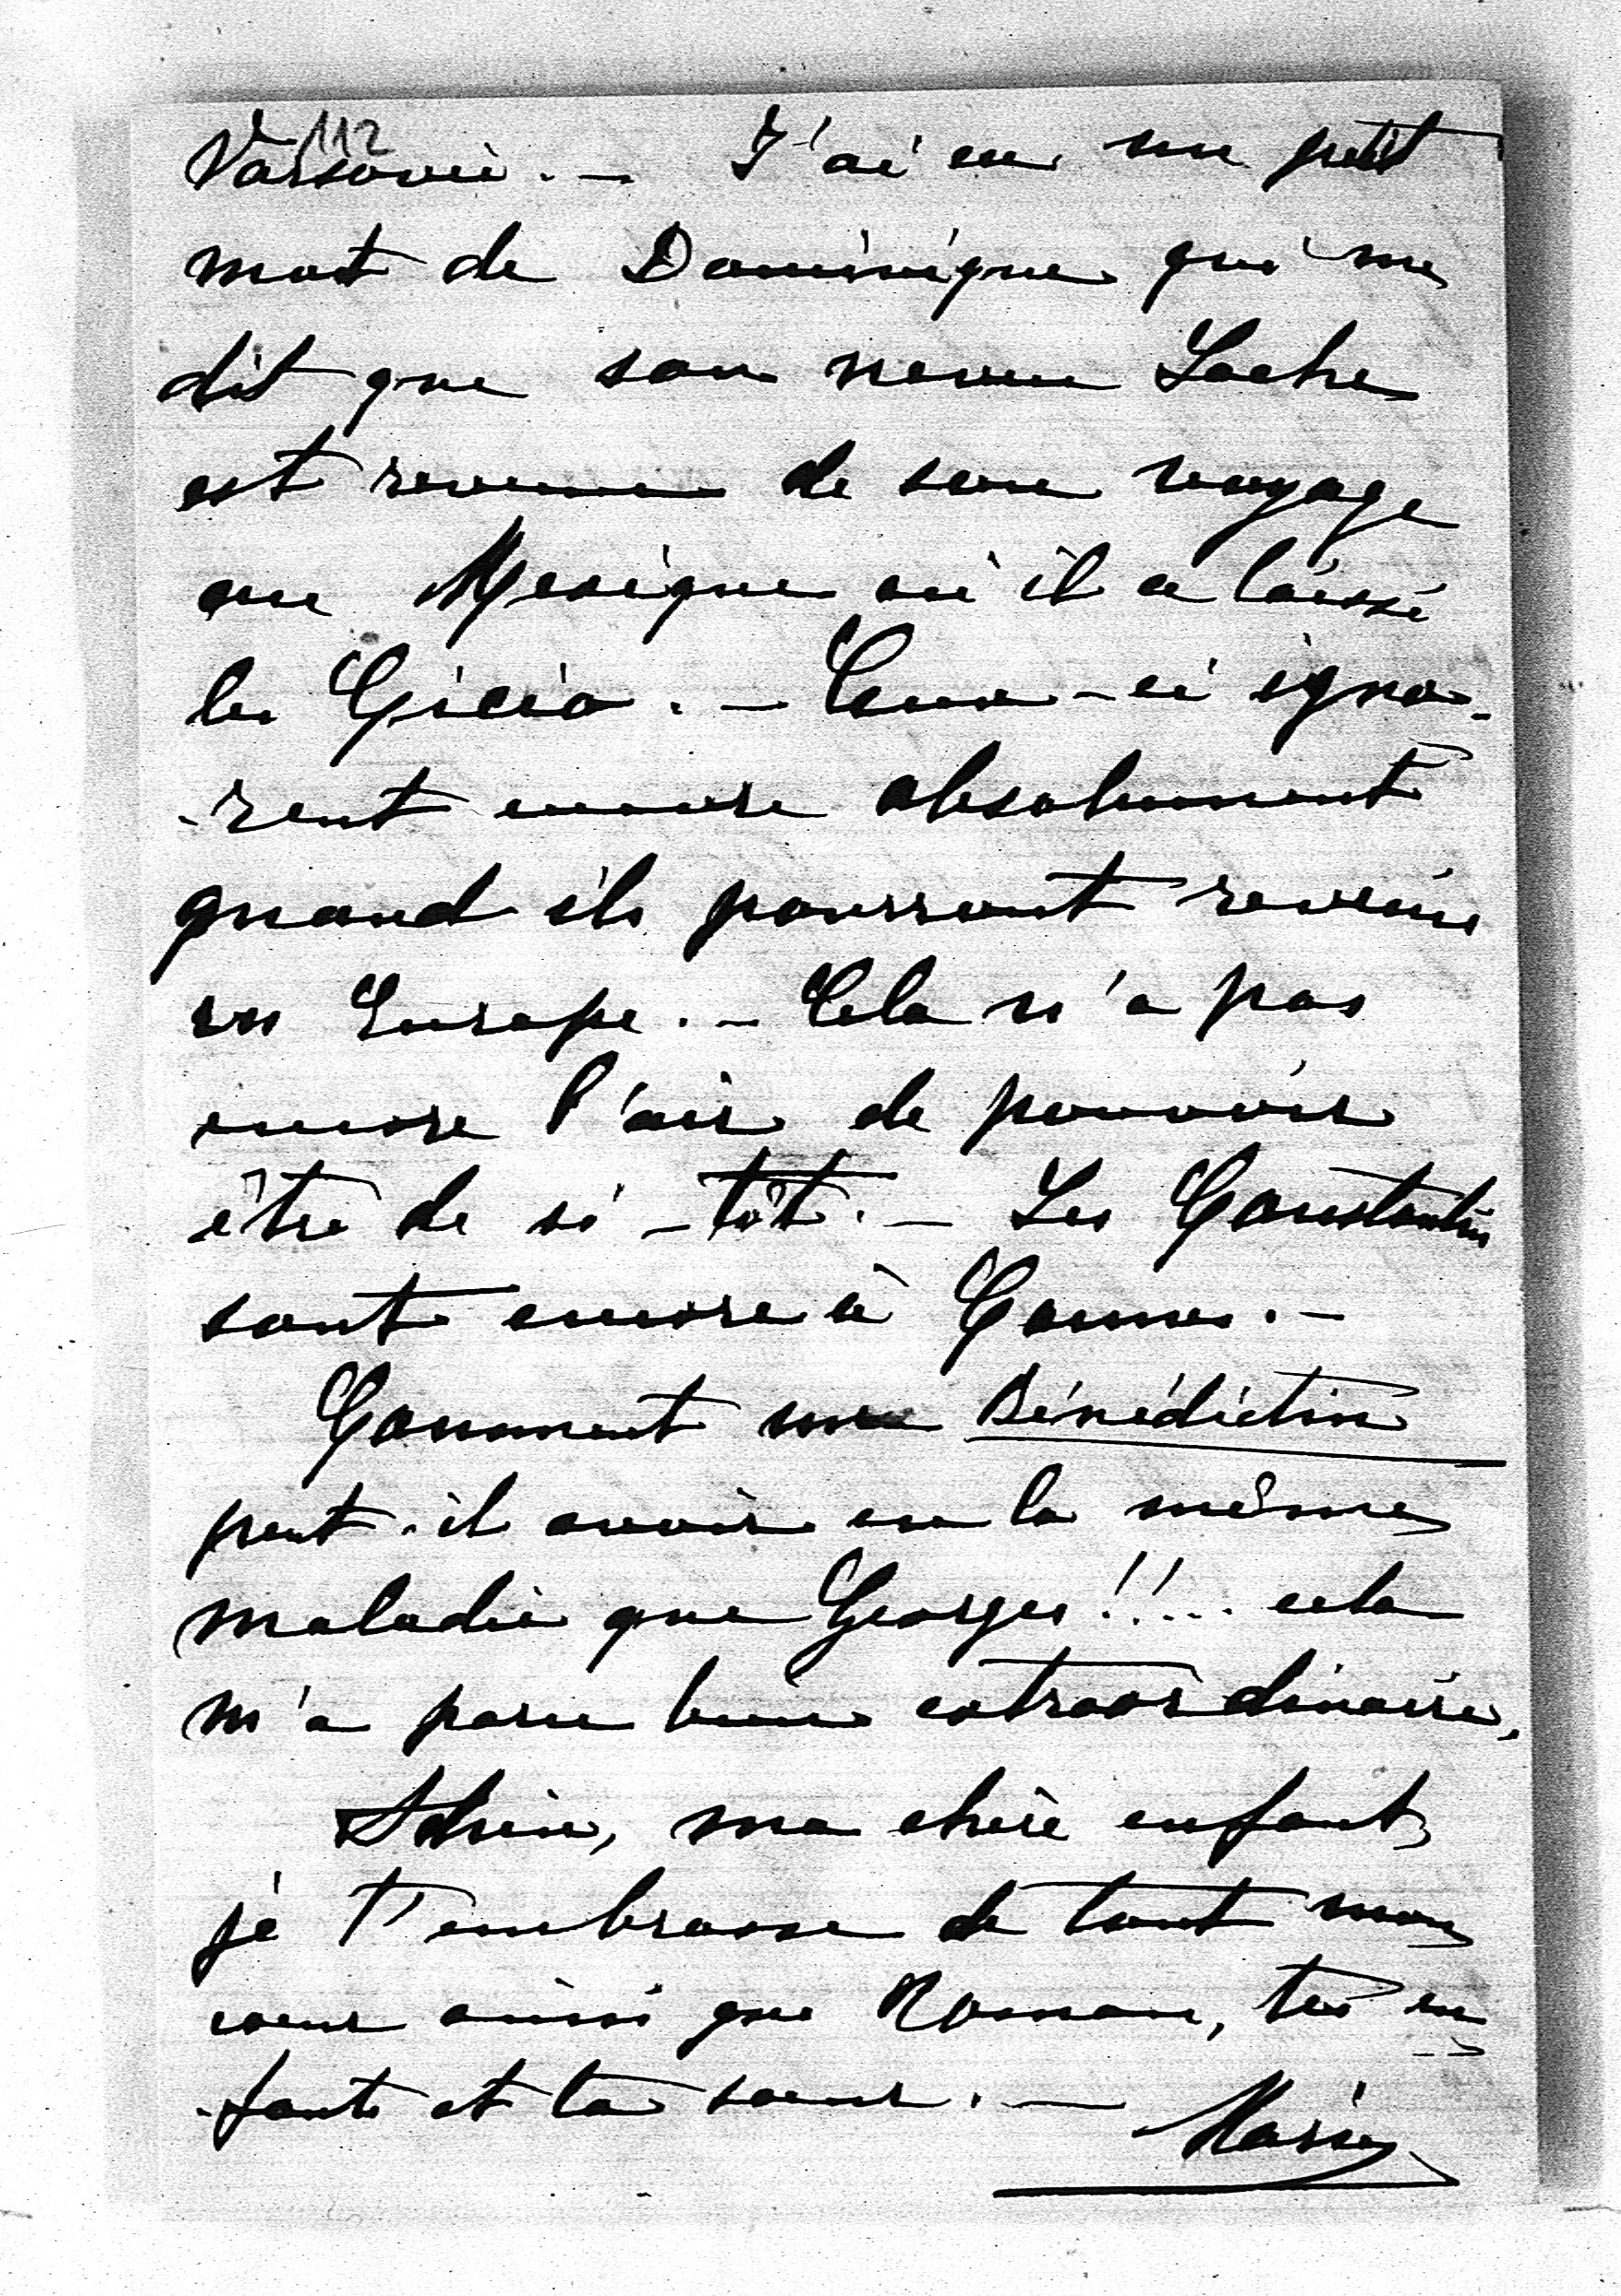 112
Varsovie. — J'ai eu un petit
mot de Dominique qui me
dit que son neveu
est revenu de son voyage
au Mexique où il a laissé
les — Ceux-ci igno-
-rent encore absolument
quand ils pourront revenir
en Europe. — Cela n'a pas
encore l'air de pouvoir
être de si-tôt. — Les Constantin
sont encore à Cannes. —
Comment un Bénédictin
peut-il avoir eu la même
maladie que Georges!!... cela
m'a paru bien extraordinaire.
Adieu, ma chère enfant,
je t'embrasse de tout mon
coeur ainsi que Roman, tes en-
-fants et ta soeur. —
Marie